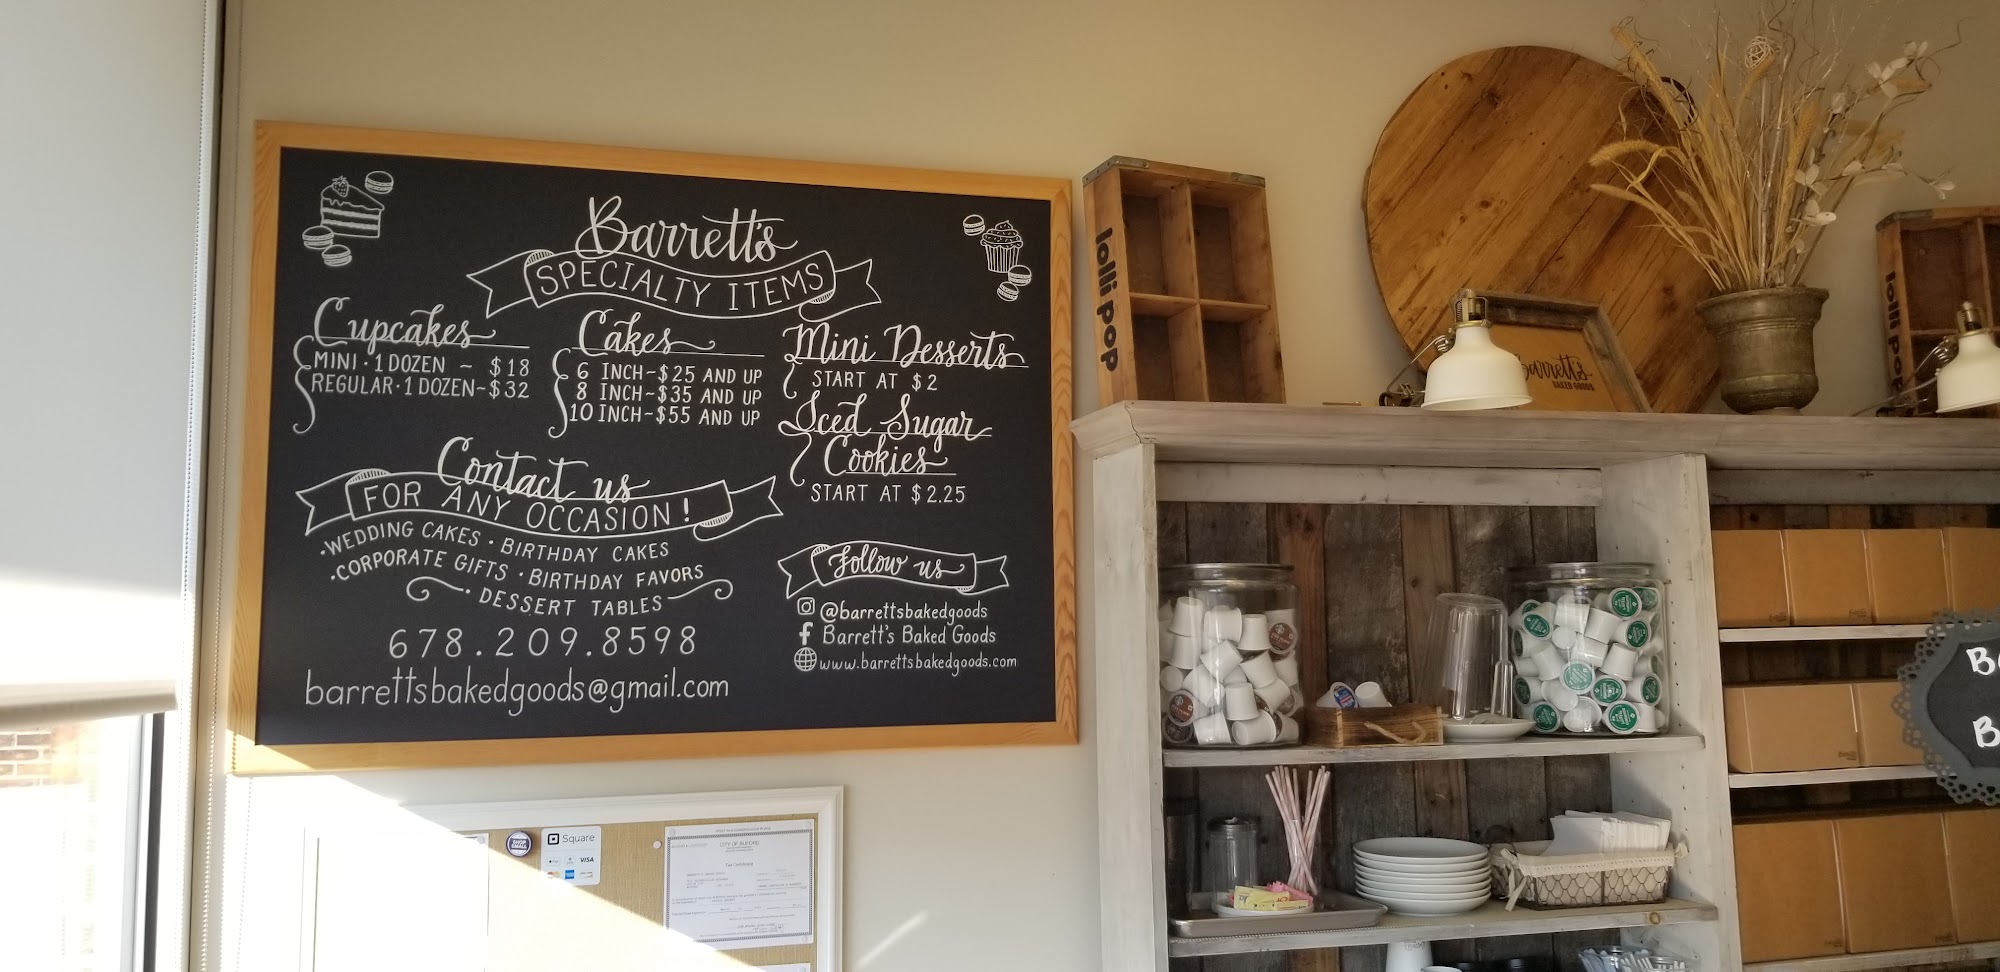 Barrett's
SPECIALTY ITEMS
Cupcakes
MINI · 1 DOZEN ~ $18
REGULAR · 1 DOZEN ~ $32
Cakes
6 INCH ~ $25 AND UP
8 INCH ~ $35 AND UP
10 INCH ~ $55 AND UP
Mini Desserts
START AT $2
Iced Sugar
Cookies
START AT $2.25
Contact us
FOR ANY OCCASION!
· WEDDING CAKES · BIRTHDAY CAKES
· CORPORATE GIFTS · BIRTHDAY FAVORS
· DESSERT TABLES
678.209.8598
barrettsbakedgoods@gmail.com
Follow us
@barrettsbakedgoods
Barrett's Baked Goods
www.barrettsbakedgoods.com
lolli pop
lolli pop
Barrett's
BAKED GOODS
SHOP
SMALL
Square
VISA
CITY OF BUFORD